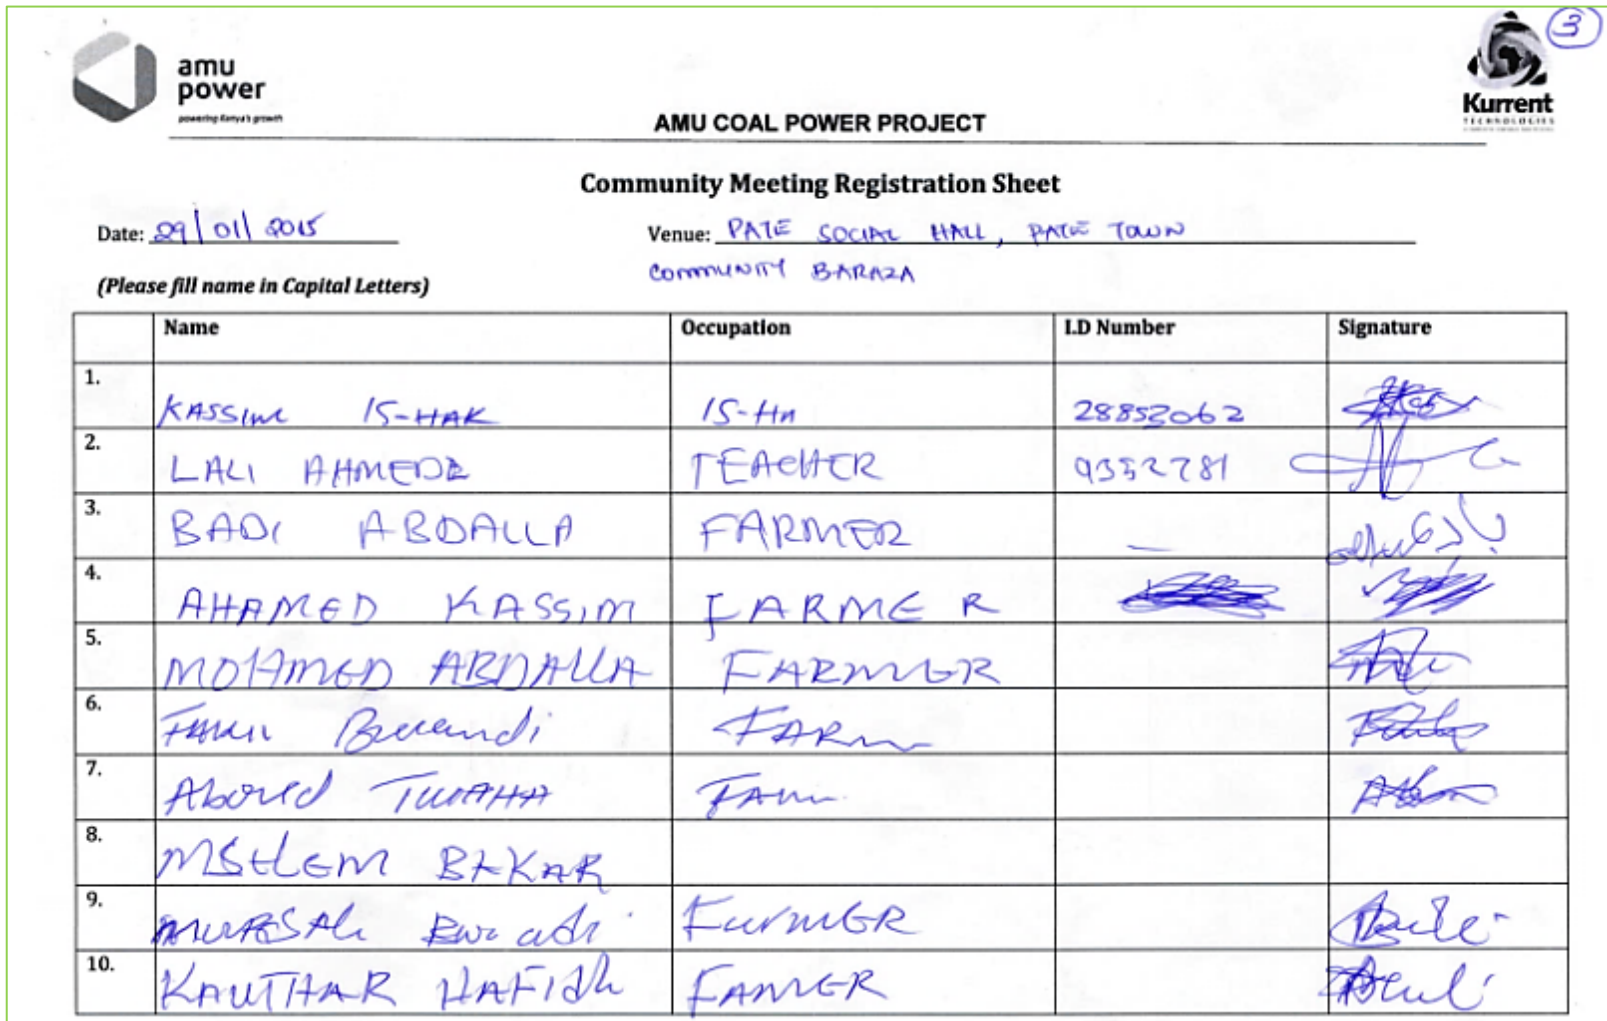 3
amu
power
powering Kenya's growth
Kurrent
TECHNOLOGIES
AMU COAL POWER PROJECT
Community Meeting Registration Sheet
Date: 29/01/2015 Venue: PATE SOCIAL HALL, PATE TOWN
COMMUNITY BARAZA
(Please fill name in Capital Letters)
Name Occupation I.D Number Signature
1. KASSIM IS-HAK IS-HA 28852062
2. LALI AHMEDE TEACHER 9352781
3. BADI ABDALLA FARMER —
4. AHAMED KASSIM FARMER
5. MOHAMED ABDALLA FARMER
6. Bwandi FARM
7. Aboud TWAHA FAM
8. MSELEM BAKAR
9. FURMER
10. KAUTHAR HAFIDH FAMER